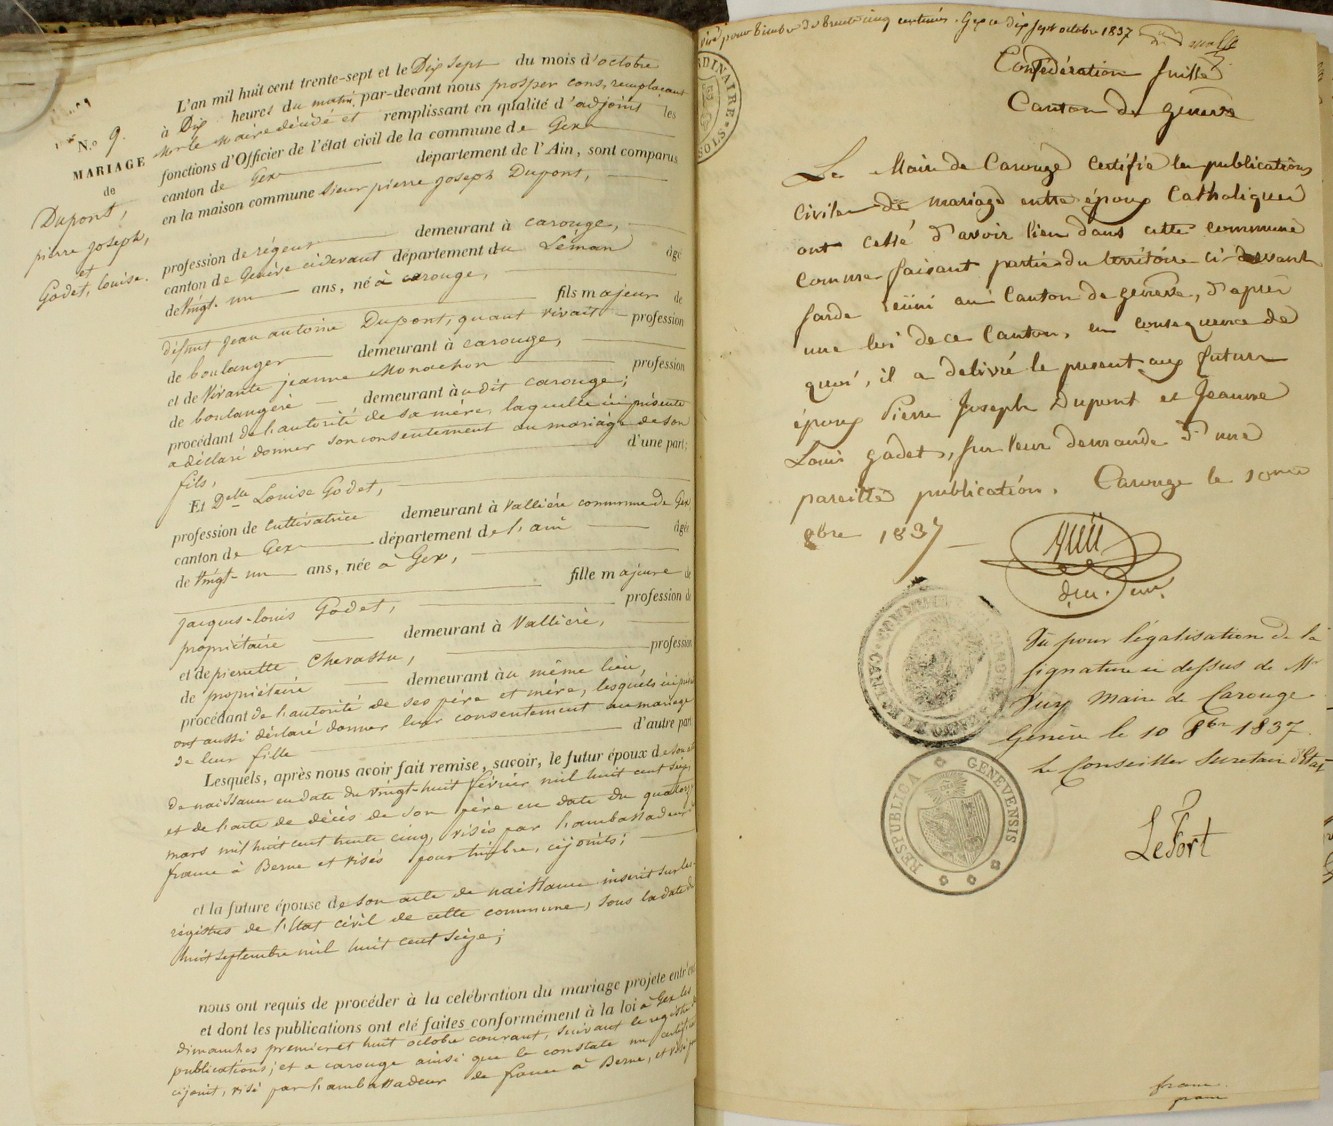 N.o 9.
MARIAGE
de
Dupont,
pierre joseph,
et
Godet, Louise.
L'an mil huit cent trente-sept et le Dix sept du mois d'octobre
à Dix heures du matin, par-devant nous prosper cons, remplaçant
Mr le Maire décédé et remplissant en qualité d'adjoint les
fonctions d'Officier de l'état civil de la commune de Gex
canton de Gex département de l'Ain, sont comparus
en la maison commune Sieur pierre joseph Dupont,
profession de régeur demeurant à carouge,
canton de Genève cidevant département du Léman âgé
de vingt-un ans, né à carouge,
fils majeur de
défunt jean antoine Dupont, quant vivait profession
de boulanger demeurant à carouge,
et de Vivante jeanne Monachon profession
de boulangère demeurant à udit carouge;
procédant de l'autorité de sa mère, laquelle ici présente
a déclaré donner son consentement au mariage de son
fils, d'une part;
Et Delle Louise Godet,
profession de Cultivatrice demeurant à Vallière commune de Gex
canton de Gex département de l'ain âgée
de vingt-un ans, née à Gex,
fille majeure de
jacques-Louis Godet, profession de
propriétaire demeurant à Vallière,
et de pierrette Chevassu, profession
de propriétaire demeurant àu même lieu,
procédant de l'autorité de ses père et mère, lesquels ici
ont aussi déclaré donner leur consentement au mariage
de leur fille d'autre part
Lesquels, après nous avoir fait remise, savoir, le futur époux de son
de naissance en date du vingt-huit février mil huit cent seize,
et de l'acte de décès de son père en date du quatorze
mars mil huit cent trente cinq, visés par l'ambassadeur
france à Berne et visés pour timbre, cijoints;
et la future épouse de son acte de naissance inscrit sur les
registres de l'Etat civil de cette commune, sous la date de
huit septembre mil huit cent seize;
nous ont requis de procéder à la celébration du mariage projeté entr'eux
et dont les publications ont eté faites conformément à la loi à Gex les
dimanches premier et huit octobre courant, suivant le registre
publications; et a carouge ainsi que le constate un certificat
cijoint, visé par l'ambassadeur de france à Berne, et visé
Visé pour timbre de trente cinq centimes. Gex ce dix sept octobre 1837
Confédération Suisse
Canton de genève
Le Maire de Carouge certifie les publications
civiles de mariage entre époux Catholiques
ont cessé d'avoir lieu dans cette commune
comme faisant partie du territoire ci-devant
Sarde réüni au Canton de genève, d'après
une loi de ce Canton, en conséquence de
quoi, il a délivré le present aux futurs
époux Pierre Joseph Dupont et Jeanne
Louise godet, sur leur demande d'une
pareille publication. Carouge le 10me
8bre 1837
Vu pour légalisation de la
signature ci dessus de Mr
Vuy Maire de Carouge
Genève le 10 8bre 1837.
Le Conseiller Secretaire d'Etat
LeFort
RESPUBLICA GENEVENSIS